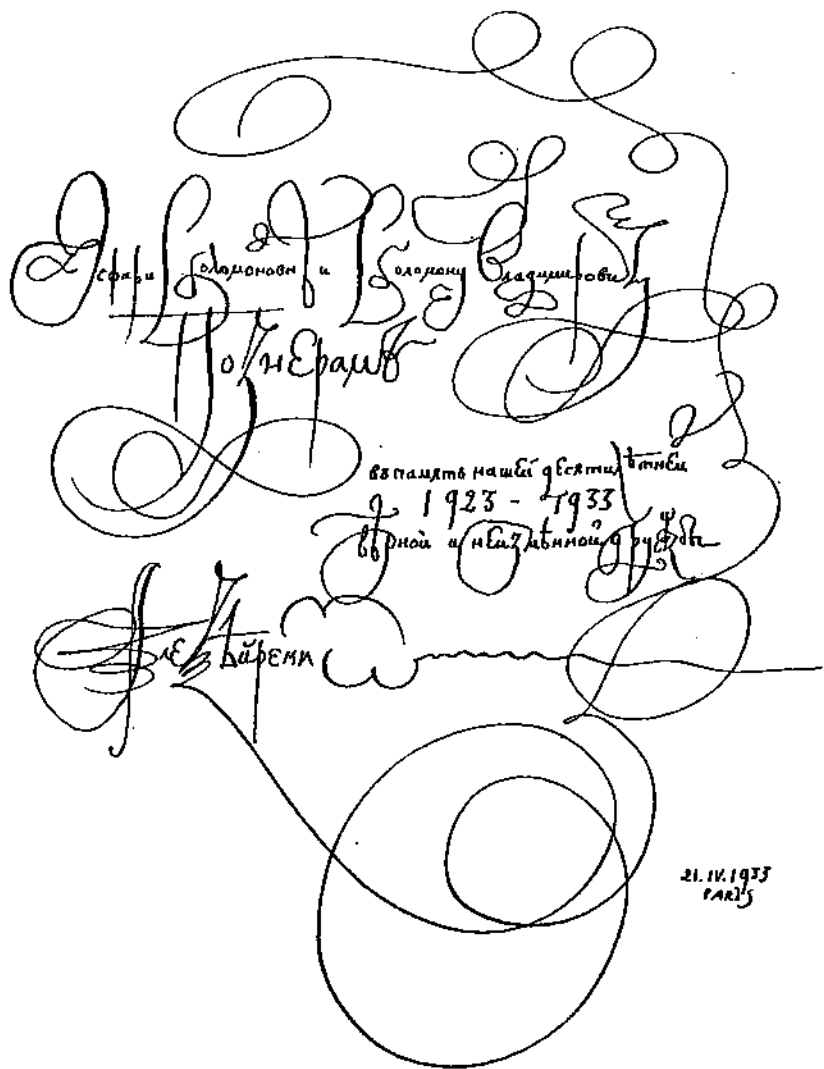 Эсфири Соломоновнѣ и Соломону Владимировичу
Познерамъ
въ память нашей десятилѣтней
1923 - 1933
вѣрной и неизмѣнной дружбы
Алексѣй Ремизовъ
21.IV.1933
PARIS